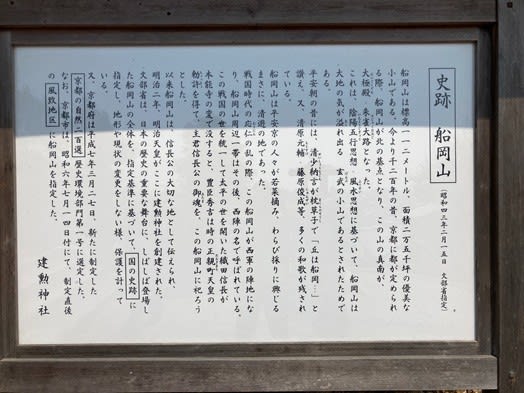 史跡 船岡山 (昭和四三年二月一五日 文部省指定)
船岡山は標高一一二メートル、面積二万五千坪の優美な
小山である。今より千二百年の昔、京都に都が定められ
る際、船岡山が北の基点となり、この山の真南が、
大極殿、朱雀大路となった。
これは、陰陽五行思想、風水思想に基づいて、船岡山は
大地の気が溢れ出る 玄武の小山であるとされたためで
ある。
平安朝の昔には、清少納言が枕草子で「丘は船岡…」と
讃え、又、清原元輔、藤原俊成等、多くの和歌が残され
ている。
船岡山は平安京の人々が若菜摘み、わらび採りに興じる
まさに、清遊の地であった。
戦国時代の応仁の乱の際、この船岡山が西軍の陣地にな
り、船岡山周辺一帯はその後、西陣の名で呼ばれている。
この戦国の世を統一して太平の世を開いた織田信長が
本能寺の変で没すると、豊臣秀吉は時の正親町天皇の
勅許を得て、主君信長公の御魂を、この船岡山に祀ろう
とした。
以来船岡山は、信長公の大切な地として伝えられ、
明治二年、明治天皇がここに建勲神社を創建された。
文部省は、日本の歴史の重要な舞台に、しばしば登場し
た船岡山の全体を、指定基準に基づいて、国の史跡に
指定し、地形や現状の変更をしない様、保護を計って
いる。
又、京都府は平成七年三月二七日、新たに制定した
京都の自然二百選 歴史環境部門第一号に選定した。
なお、京都市は、昭和六年七月一四日付にて、制定直後
の 風致地区 に船岡山を指定した。
建勲神社